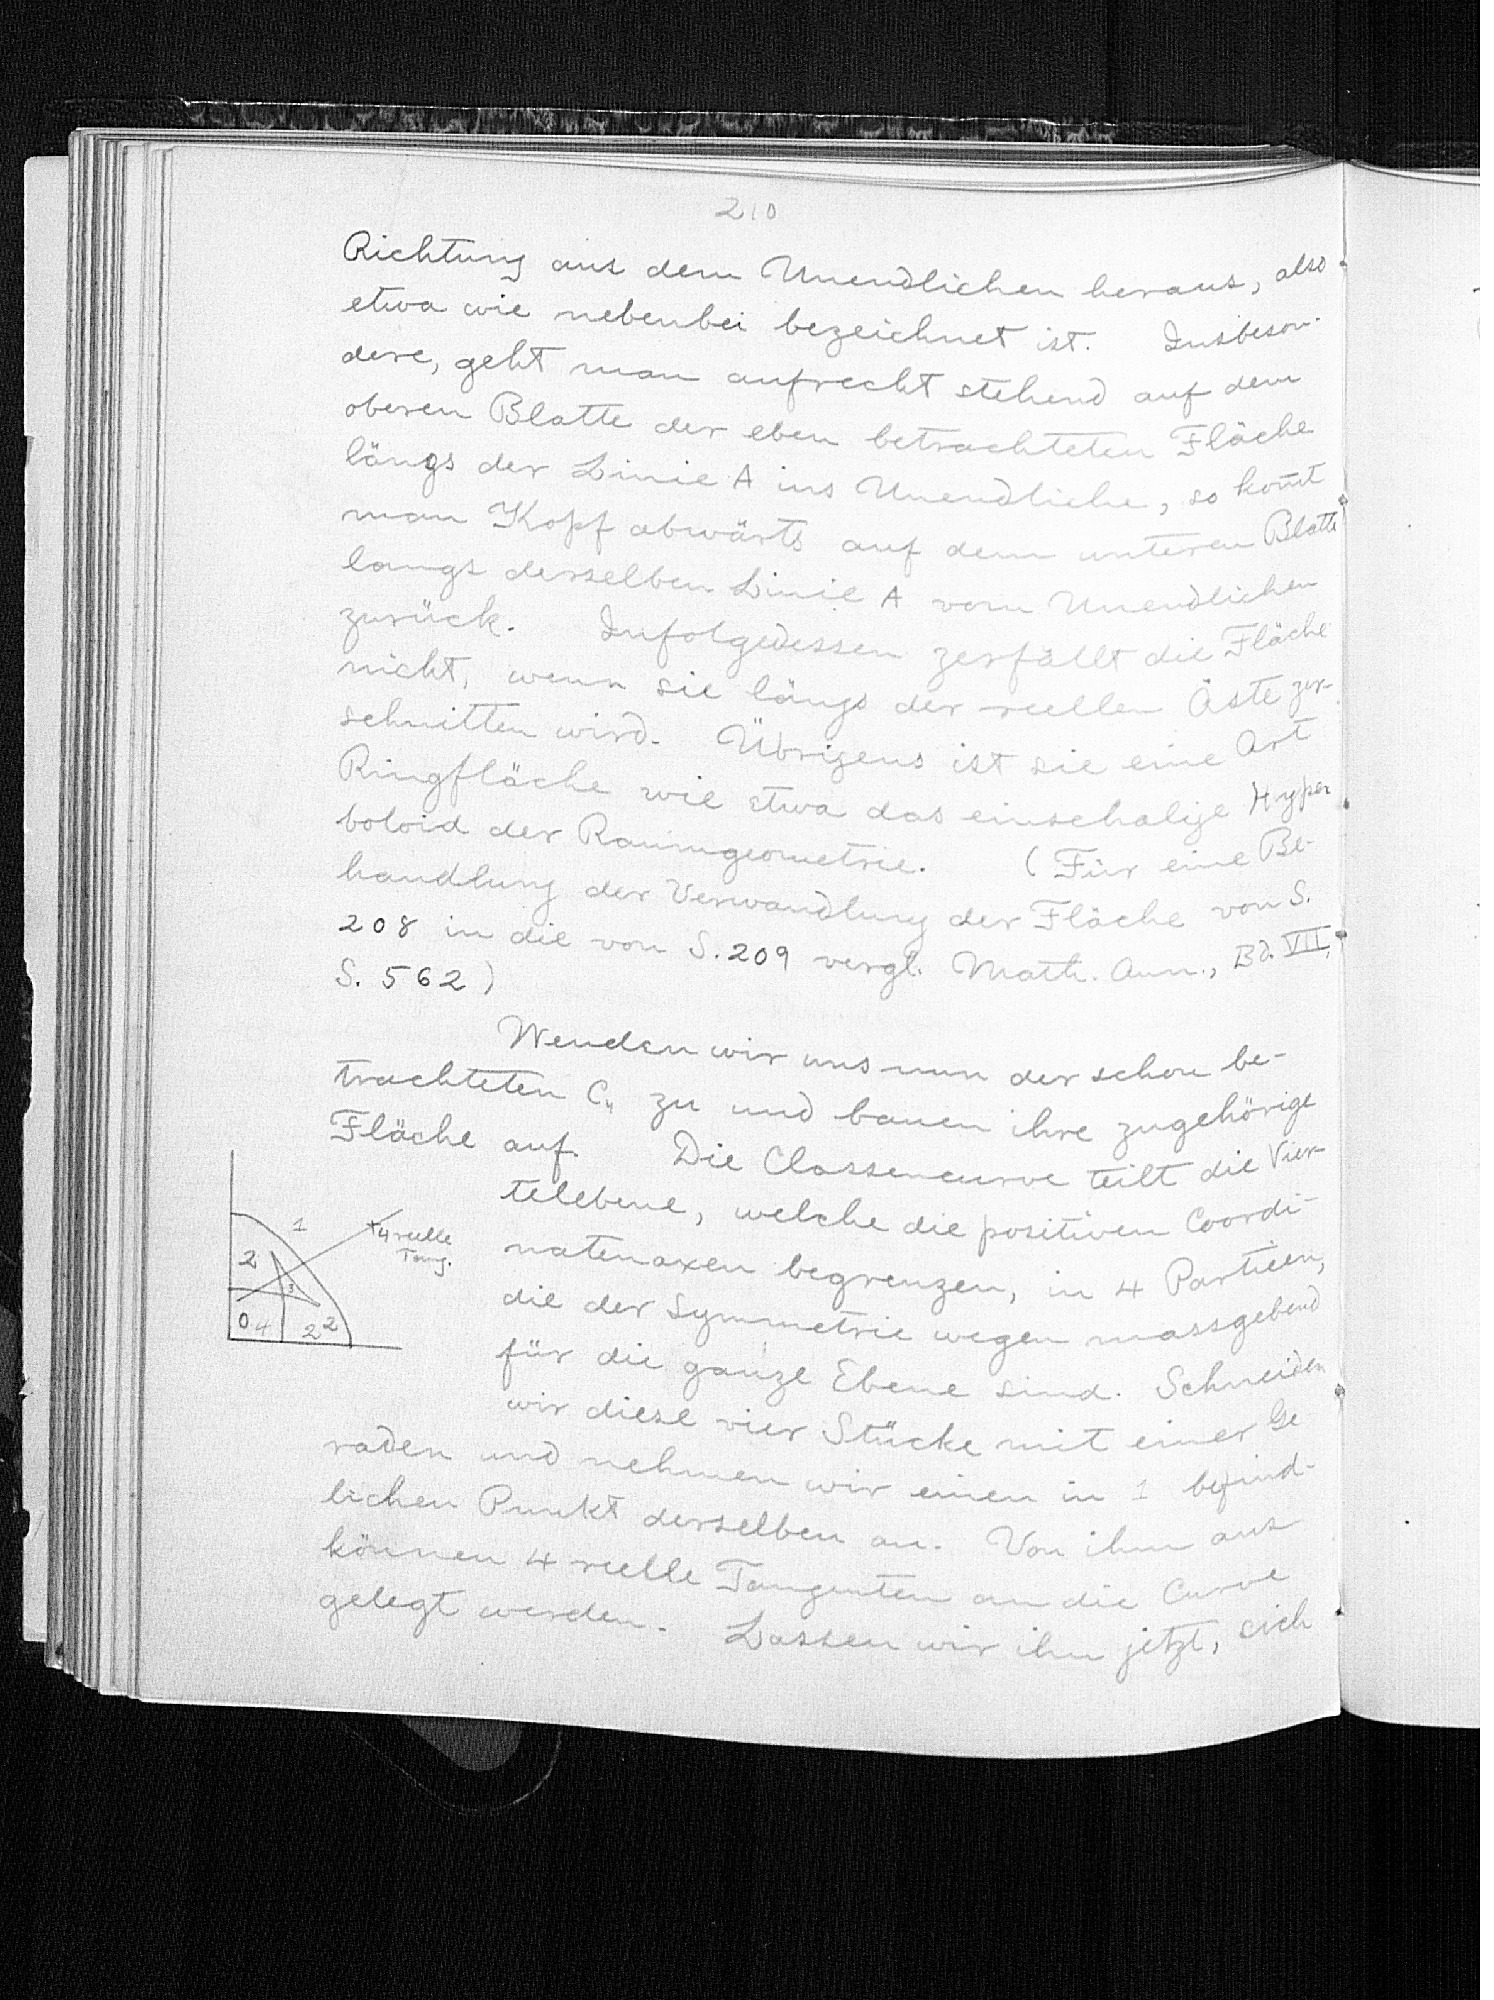 210
Richtung aus dem Unendlichen heraus, also
etwa wie nebenbei bezeichnet ist. Insbeson-
dere, geht man aufrecht stehend auf dem
oberen Blatte der eben betrachteten Fläche
längs der Linie A ins Unendliche, so kom̄t
man Kopf abwärts auf dem unteren Blatte
langs derselben Linie A vom Unendlichen
zurück. Infolgedessen zerfällt die Fläche
nicht, wenn sie längs der reellen Äste zer-
schnitten wird. Übrigens ist sie eine Art
Ringfläche wie etwa das einschalige Hyper
boloid der Raumgeometrie. (Für eine Be-
handlung der Verwandlung der Fläche von S.
208 in die von S. 209 vergl. Math. Ann., Bd. VII,
S. 562)
Wenden wir uns nun der schon be-
trachteten C₄ zu und bauen ihre zugehörige
Fläche auf. Die Classencurve teilt die Vier-
telebene, welche die positiven Coordi-
natenaxen begrenzen, in 4 Partieen,
die der Symmetrie wegen massgebend
für die ganze Ebene sind. Schneiden
wir diese vier Stücke mit einer Ge
raden und nehmen wir einen in 1 befind-
lichen Punkt derselben an. Von ihm aus
können 4 reelle Tangenten an die Curve
gelegt werden. Lassen wir ihn jetzt, sich
1
4 reelle
Tang.
2
3
0 4
2 2